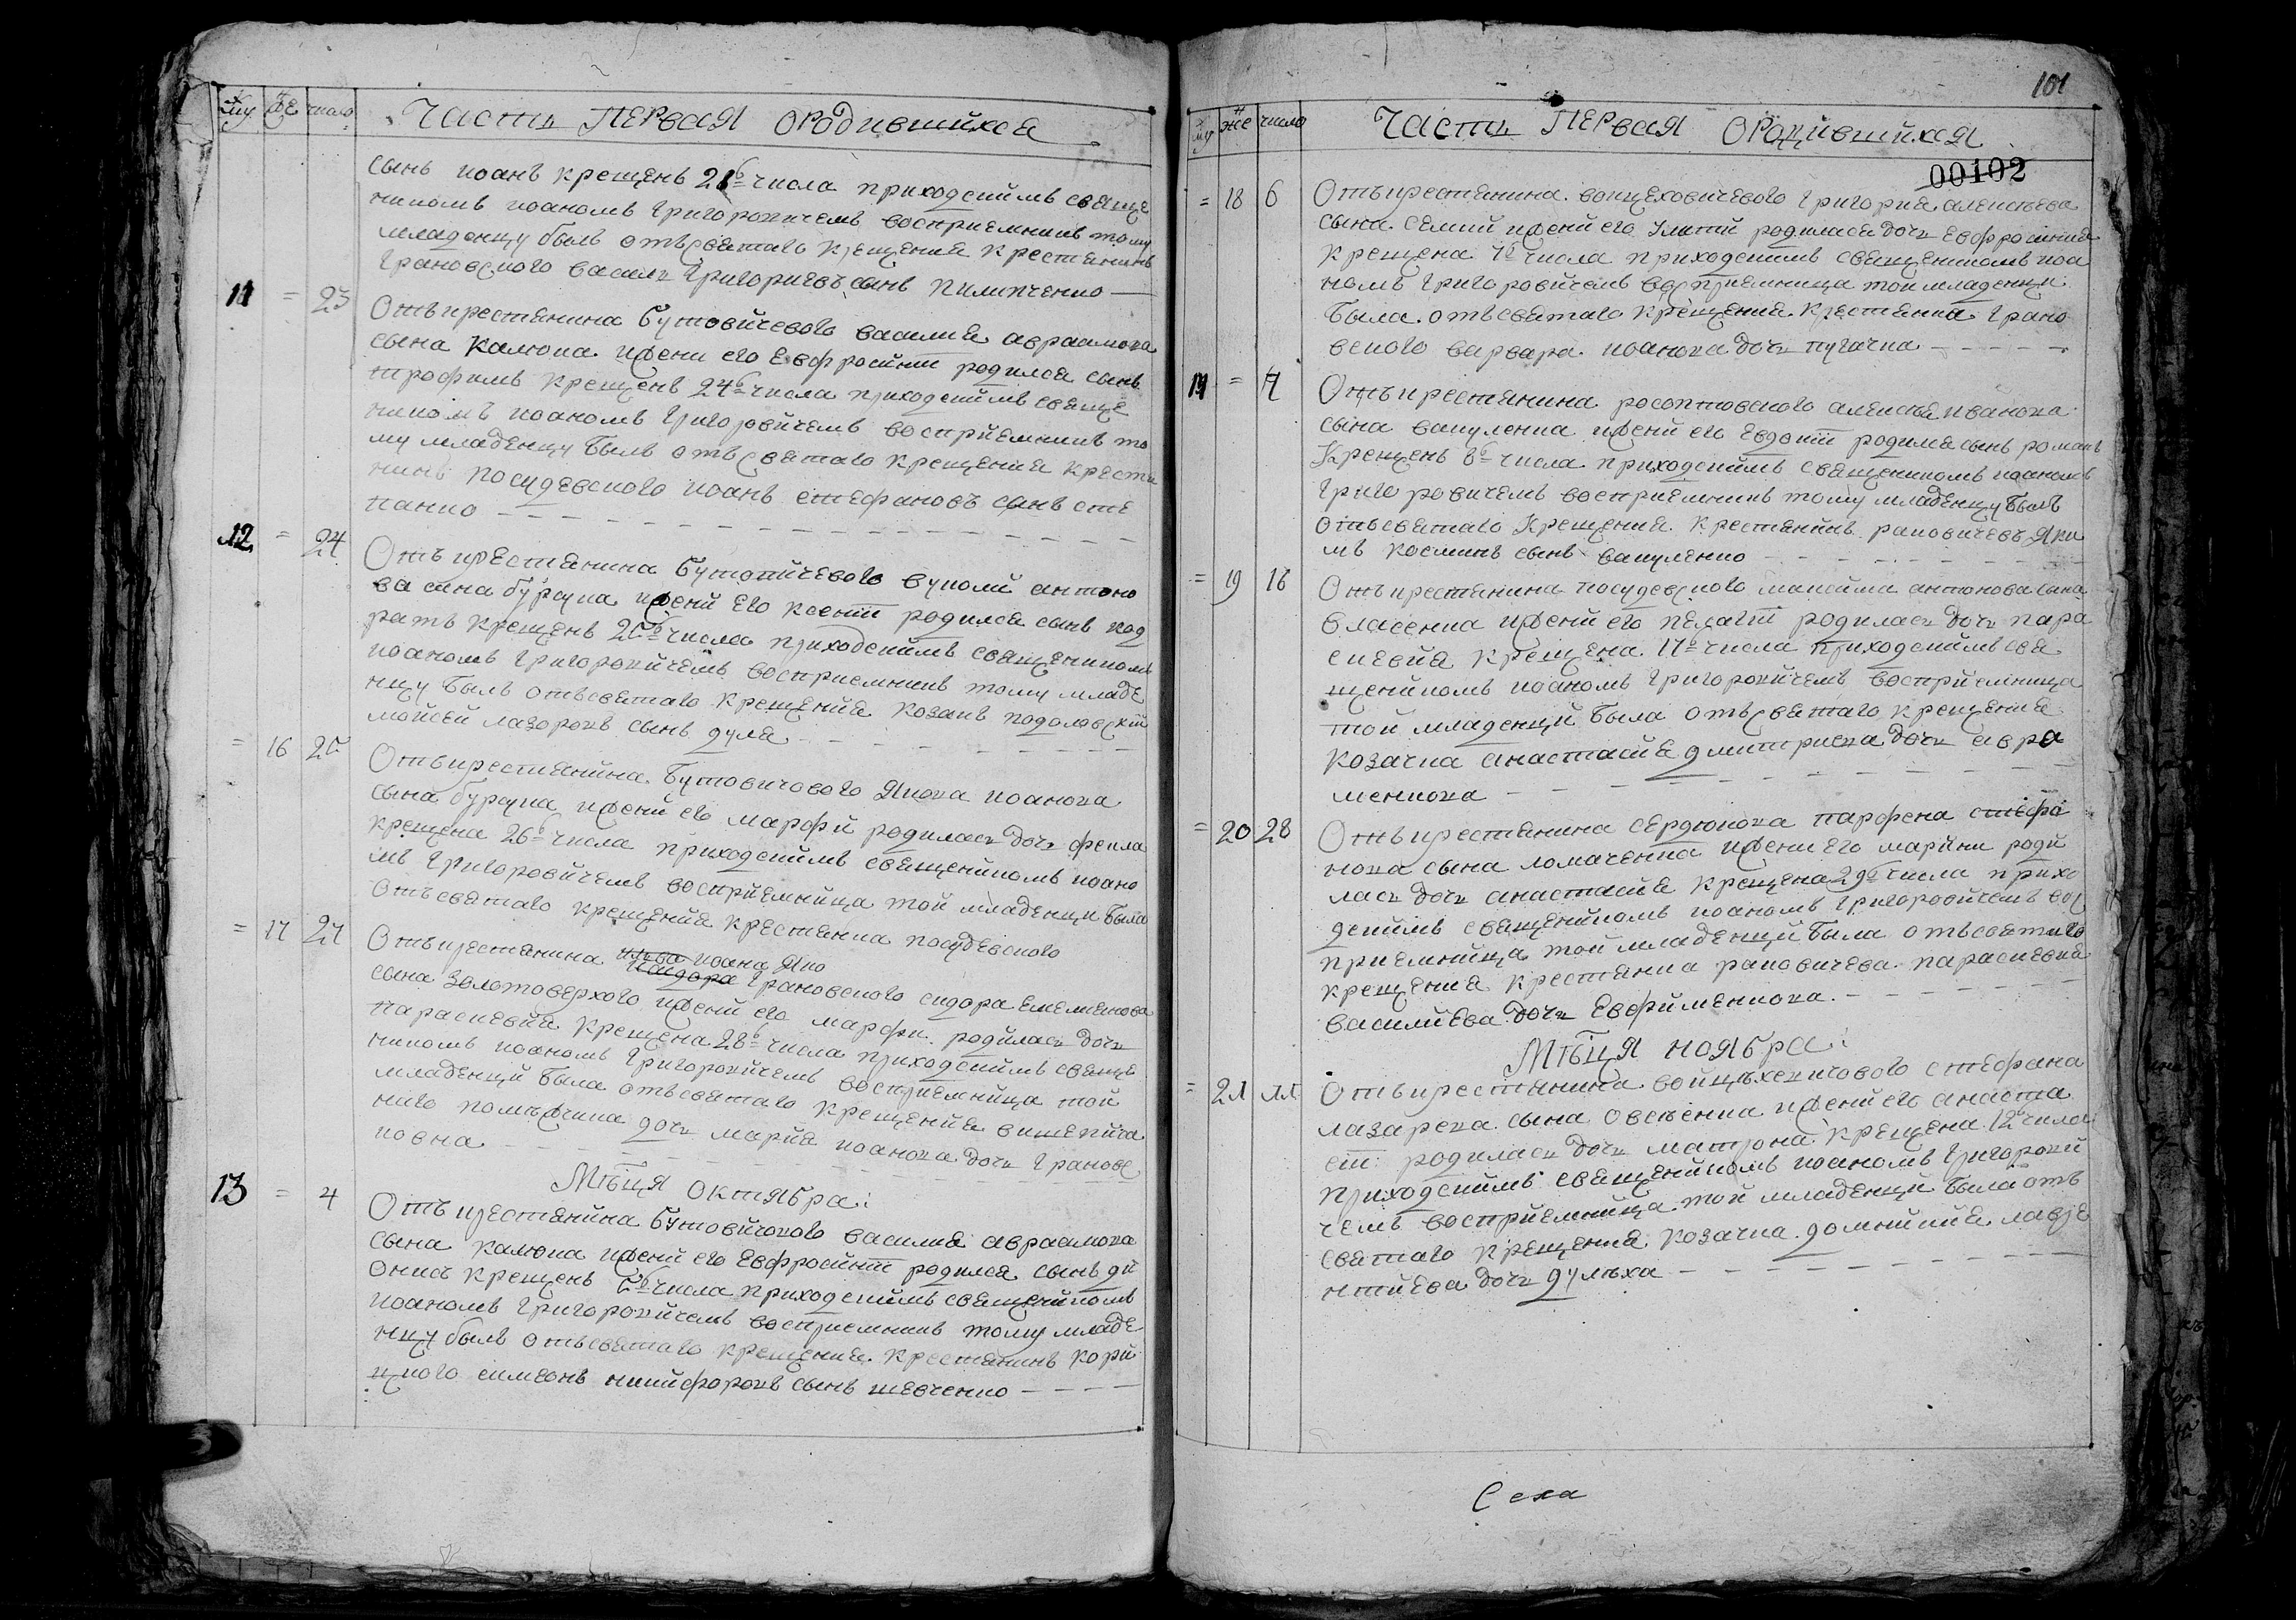 му же число Часть ПЕРВАЯ ОРОДИВШИХСЯ
сынъ иоанъ крещенъ 21г числа приходскимъ свяще
никомъ иоаномъ григоровичемъ восприемникъ тому
младенцу былъ отъ святаго крещения крестянинъ
грановского василь григориевъ сынъ пилипченко
11 = 23 Отъ крестянина бутовичевого василия авраамова
сына калюка и жени его Евфросинии родился сынъ
трофимъ крещенъ 24г числа приходскимъ свяще
никомъ иоаномъ григоровичемъ восприемникъ то
му младенцу былъ отъ святаго крещения крестя
нинъ посудевского иоанъ стефановъ сынъ сте
панко
12 = 24 Отъ крестянина бутовичевого вуколи антоно
ва сина бурдука и жени его ксении родился сынъ код
ратъ крещенъ 25г числа приходскимъ священикомъ
иоаномъ григоровичемъ восприемникъ тому младе
нцу былъ отъ святаго крещения козакъ подоловский
мойсей лазоровъ сынъ дуля
= 16 25 Отъ крестянина бутовичового Якова иоанова
сына бурдука и жени его марфи родилась дочь фекла
крещена 26г числа приходскимъ священикомъ иоано
мъ григоровичемъ восприемница той младенци была
отъ святаго крещения крестянка посудевского
= 17 27 Отъ крестянина иоана Яко
грановского сидора емелянова
сына золотоверхого и жени его марфи родилась дочь
параскевия крещена 28г числа приходскимъ свяще
никомъ иоаномъ григоровичемъ восприемница той
младенци была отъ святаго крещения
дочь мария иоанова дочь грановс
ковна
Мсця октября:
13 = 4 Отъ крестянина бутовичового василия авраамова
сына калюка и жени его Евфросинии родился сынъ ди
онисъ крещенъ 5г числа приходскимъ священикомъ
иоаномъ григоровичемъ восприемникъ тому младе
нцу былъ отъ святаго крещения крестянинъ кори
цкого симеонъ никифоровъ сынъ шевченко
101
му же число Часть ПЕРВАЯ ОРОДИВШИХСЯ
00102
= 18 6 Отъ крестянина войцеховичевого григория алексеева
сына семий и жени его родилася дочь Евфросиния
крещена 7г числа приходскимъ священикомъ иоа
номъ григоровичемъ восприемница той младенци
была отъ святаго крещения крестянка грано
вского варвара иоанова дочь пугачка
14 = 7 Отъ крестянина алексея иванова
сына вакуленка и жени его Евдокии родился сынъ романъ
крещенъ 8г числа приходскимъ священикомъ иоаномъ
григоровичемъ восприемникъ тому младенцу былъ
отъ святаго крещения крестянинъ раковичевъ Яки
мъ косминъ сынъ вакуленко
= 19 16 Отъ крестянина посудевского максима антонова сына
власенка и жени его пелагии родилась дочь пара
скевия крещена 17г числа приходскимъ свя
щеникомъ иоаномъ григоровичемъ восприемница
той младенци была отъ святаго крещения
козачка анастасия дмитриева дочь авра
менкова
= 20 28 Отъ крестянина сердюкова парфена стефа
нова сына ломаченка и жени его марини роди
лась дочь анастасия крещена 29г числа прихо
дскимъ священикомъ иоаномъ григоровичемъ вос
приемница той младенци была отъ святаго
крещения крестянка раковичева параскевия
василиева дочь Евфименкова
Мсця ноября:
= 21 11 Отъ крестянина войцеховичового стефана
лазарева сына овсеенка и жени его анаста
сии родилась дочь матрона крещена 12г числа
приходскимъ священикомъ иоаномъ григорови
чемъ восприемница той младенци была отъ
святаго крещения козачка домникия лавре
нтиева дочь дулиха
Села